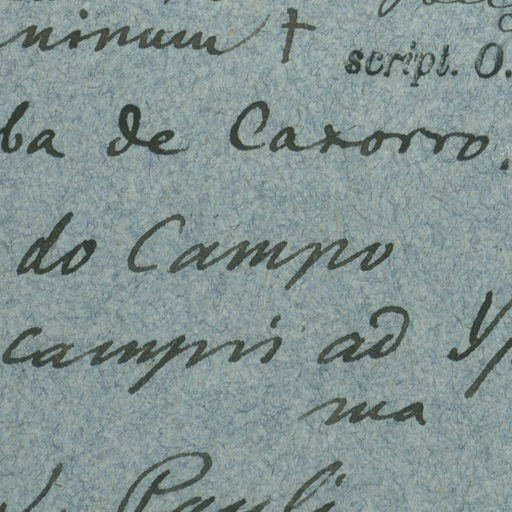 ninum †
script. O.
ba de Caxorro.
do Campo
campis ad Yp
ma
Pauli